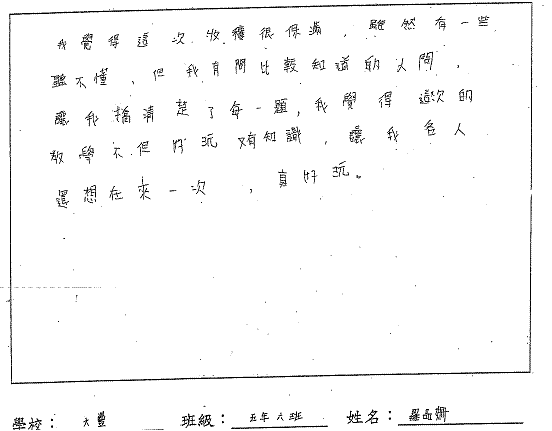 我覺得這次收穫很保滿，雖然有一些
聽不懂，但我有問比較知道的人問，
讓我搞清楚了每一題，我覺得這次的
教學不但好玩又有知識，讓我各人
還想在來一次，真好玩。
學校：大豐 班級：五年六班 姓名：羅品姍